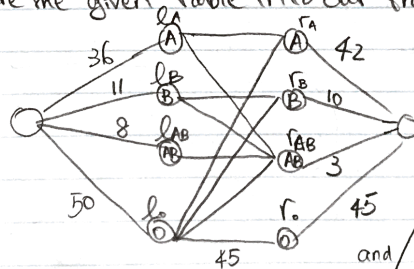 the given table into our
36 ℓA A rA A 42
11 ℓB B rB B 10
8 ℓAB AB rAB AB 3
50 ℓo O ro O 45
45
and